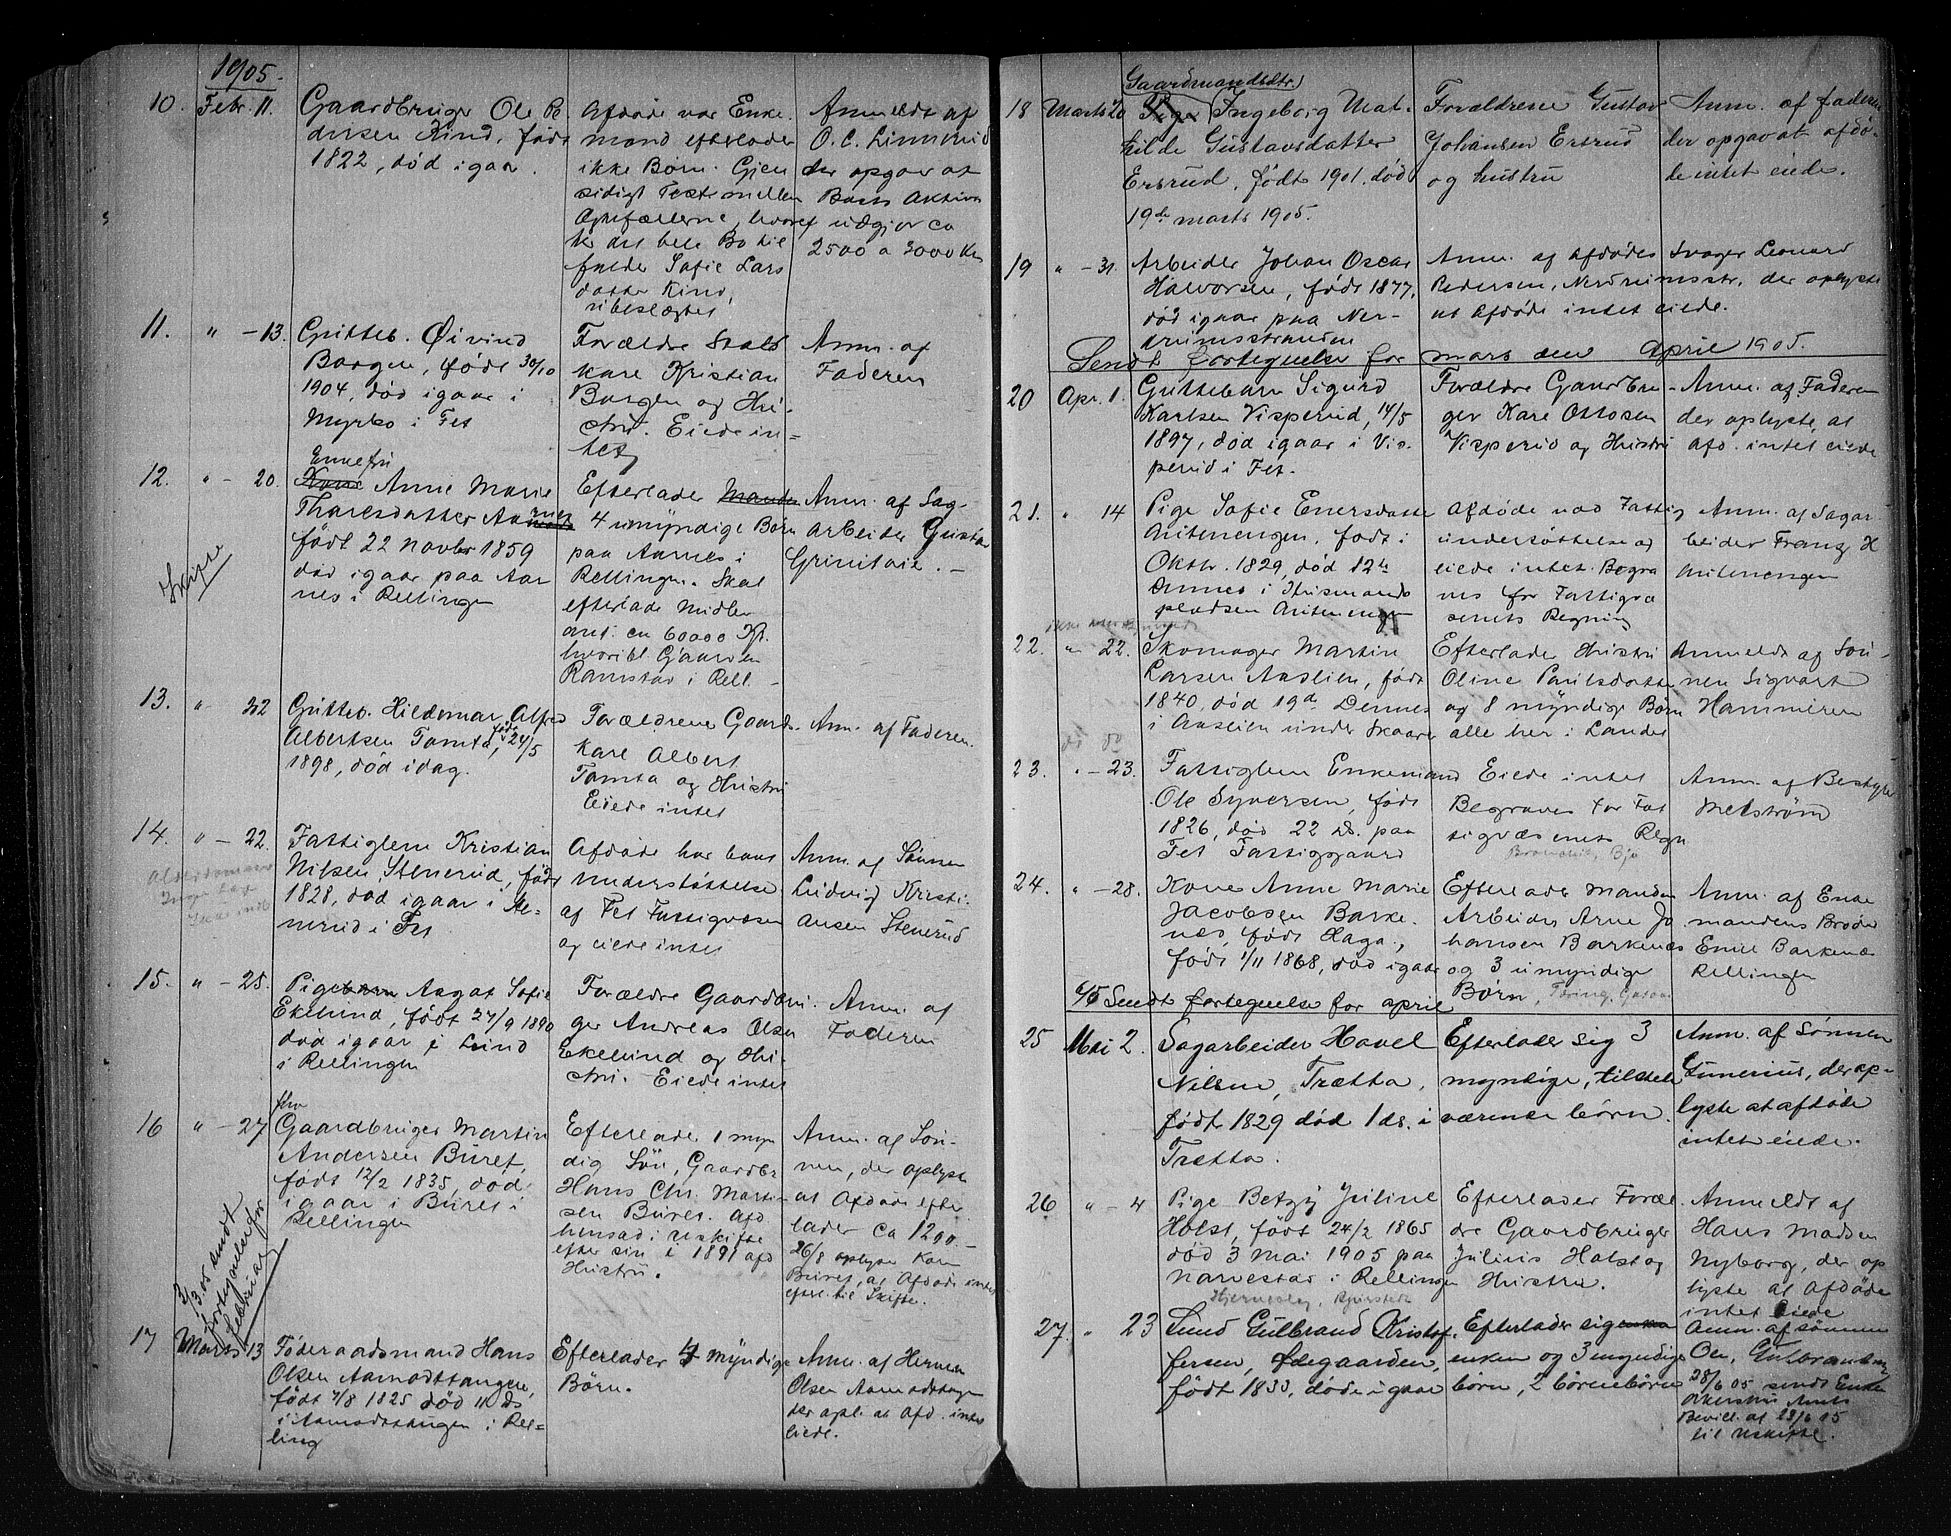 1905.
10. Febr. 11. Gaardbruger Ole Pe
dersen Kind, født
1822, død igaar.
Afdøde var Enke
mand efterlader
ikke Børn. Gjen
sidigt Test. mellem
Ægtefællerne, hvoref
ter det hele Bo til
falder Sofie Lars
datter Kind,
ubeslægtet
Anmeldt af
O. C. Linnerud
der opgav at
Boets Aktiva
udgjør ca
2500 a 3000 Kr
11. " - 13. Gutteb. Øivind
Borgen, født 30/10
1904, død igaar i
Myrbo i Fet
Forældre
Kristian
Borgen og Hu-
stru. Eiede in-
tet
Anm. af
Faderen
12. " - 20. Enkefru
Kone Anne Marie
Tharesdatter Aarnes
født 22 novbr 1859
død igaar paa Aar
nes i Rellingen
Skifte
Efterlader Manden
4 umyndige Børn
paa Aarnes i
Rellingen. Skal
efterlade Midler
ant. ca 60000 Kr.
hvoribl. Gaarden
Ramstad i Rell.
Anm. af Sag-
arbeider Gustav

13. " 22 Gutteb. Hildemar Alfred
Albertsen Tomta, født 24/5
1898, død idag.
Forældrene Gaardb.
Kare Albert
Tomta og Hustru
Eiede intet
Anm. af Faderen.
14. " - 22. Fattiglem Kristian
Nilsen Stenerud, født
1828, død igaar i Ste-
nerud i Fet
Alderdoms
Afdøde har havt
Understøttelse
af Fet Fattigvæsen
og eiede intet
Anm. af Sønnen
Ludvig Kristi-
ansen Stenerud
15. " - 25. Pigebarn Aagot Sofie
Ekelund, født 27/9 1890
død igaar i Lund
i Rellingen
Forældre Gaardbru-
ger Andreas Olsen
Ekelund og Hu-
stru. Eiede intet
Anm. af
Faderen
16 " - 27 fhv
Gaardbruger Martin
Andersen Buret,
født 12/2 1835, død
igaar i Buret i
Rellingen
Efterlader 1 myn
dig Søn, Gaardbr
Hans Chr. Martin
sen Buret. Afd
hensad i uskifte
efter sin i 1891 afd
Hustru.
Anm. af Søn-
nen, der oplyste
at Afdøde efter
lader ca 1200.-
26/8 oplyser Karen
Buret, at Afdøde intet
efterl. til Skifte.
2/3.05 sendt
fortegnelse for
februar
17 Marts 13 Føderaadsmand Hans
Olsen Aamodttangen,
født 7/8 1825 død 11 ds
i Aamodttangen i Rel-
ling
Efterlader 4 myndige
Børn.
Anm. af Herman
Olsen Aamodttangen
der opl. at Afd. intet
eiede.
18 Marts 20 Gaardmandsdtr.
Pige Ingeborg Mat-
hilde Gustavsdatter
Ersrud, født 1901. død
19de marts 1905.
Forældrene Gustav
Johansen Ersrud
og hustru
Anm. af faderen
der opgav at afdø-
de intet eiede.
19 " - 31. Arbeider Johan Oscar
Halvorsen, født 1877,
død igaar paa Ner-
drumsstranden
Anm. af Afdødes Svager Leonard
Pedersen, Nerdrumsstr., der oplyste
at Afdøde intet eiede.
Sendt fortegnelse for mars den April 1905.
20 Apr. 1. Guttebarn Sigurd
Karlsen Visperud, 14/5
1897, død igaar i Vis-
perud i Fet.
Forældre Gaardbru-
ger Kare Ottosen
Visperud og Hustru
Anm. af Faderen
der oplyste, at
Afd. intet eiede
21. " 14 Pige Sofie Enersdatter
født i
Oktbr. 1829, død 12te
dennes i Husmands
pladsen
Afdøde nød Fattig
understøttelse og
eiede intet. Begra
ves for Fattigvæ
senets Regning
Anm. af Sagar
beider Franz H

22. " 22. Skomager Martin
Larsen Aaslien, født
1840, død 19de Dennes
i Aaslien under Skaarer
Efterlade Hustru
Oline Paulsdatter
og 8 myndige Børn
alle her i Landet
Anmeldt af Søn-
nen Sigvart
Hammeren
do do
23. " - 23. Fattiglem Enkemand
Ole Syversen, født
1826, død 22 ds. paa
Fet Fattiggaard
Eiede intet
Begraves for Fat
tigvæsenets Regn
Anm. af Bestyrer
Melstrøm
24. " - 28. Kone Anne Marie
Jacobsen Barke-
næs, født Haga,
født 1/11 1868, død igaar
Efterlader Manden
Arbeider Arne Jo
hansen Barkenæs
og 3 umyndige
Børn,
Anm. af Enke
mandens Broder
Emil Barkenæs
Rellingen
6/5 Sendt fortegnelse for april
25 Mai 2. Sagarbeider Havel
Nilsen, Trætta,
født 1829 død 1 ds. i
Trætta.
Efterlader sig 3
myndige, tilstede
værende børn.
Anm. af Sønnen
Gunerius, der op-
lyste at afdøde
intet eiede.
26 " - 4 Pige Betzy Juline
Holst, født 24/2 1865
død 3 mai 1905 paa
Narvestad i Rellingen
Efterlader Foræl
dre Gaardbruger
Julius Holst og
Hustru.
Anmeldt af
Hans Madsen
Nyborg, der op
lyste at Afdøde
intet Eiede
27. " 23 Lund Gulbrand Kristof-
fersen, Ødegaarden,
født 1833, døde igaar
Efterlader sig enken
enken og 3 myndige
børn, 2 børnebørn
Anm. af sønnen
Ole Gulbrandsen
28/6 05 sendt Enken
Akershus Amts
Bevill. af 23/6 05
til Uskifte.